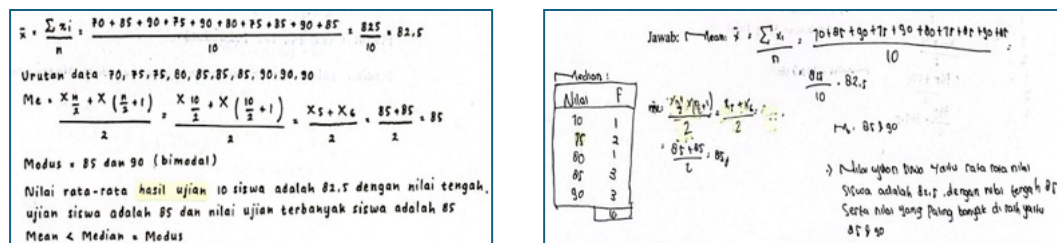 x̄ = Σxi / n = 70 + 85 + 90 + 75 + 90 + 80 + 75 + 85 + 90 + 85 / 10 = 825 / 10 = 82,5
Urutan data 70, 75, 75, 80, 85, 85, 85, 90, 90, 90
Me = X n/2 + X (n/2 + 1) / 2 = X 10/2 + X (10/2 + 1) / 2 = X5 + X6 / 2 = 85 + 85 / 2 = 85
Modus = 85 dan 90 (bimodal)
Nilai rata-rata hasil ujian 10 siswa adalah 82,5 dengan nilai tengah
ujian siswa adalah 85 dan nilai ujian terbanyak siswa adalah 85
Mean < Median = Modus
Jawab: Mean x̄ = Σxi / n = 70+85+90+75+90+80+75+85+90+85 / 10
825 / 10 = 82,5
Median :
Nilai F
70 1
75 2
80 1
85 3
90 3
= X5 + X6 / 2
= 85 + 85 / 2 = 85
85 & 90
Nilai ujian siswa yaitu rata rata nilai
siswa adalah 82,5, dengan nilai tengah 85
Serta nilai yang paling banyak di raih yaitu
85 & 90